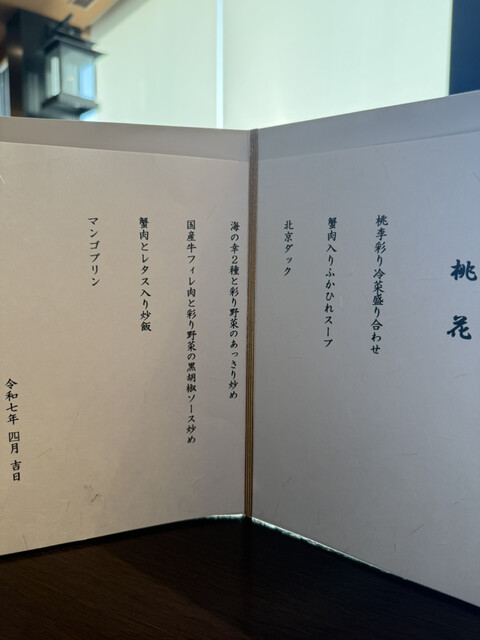 桃花
桃李彩り冷菜盛り合わせ
蟹肉入りふかひれスープ
北京ダック
海の幸2種と彩り野菜のあっさり炒め
国産牛フィレ肉と彩り野菜の黒胡椒ソース炒め
蟹肉とレタス入り炒飯
マンゴプリン
令和七年 四月 吉日